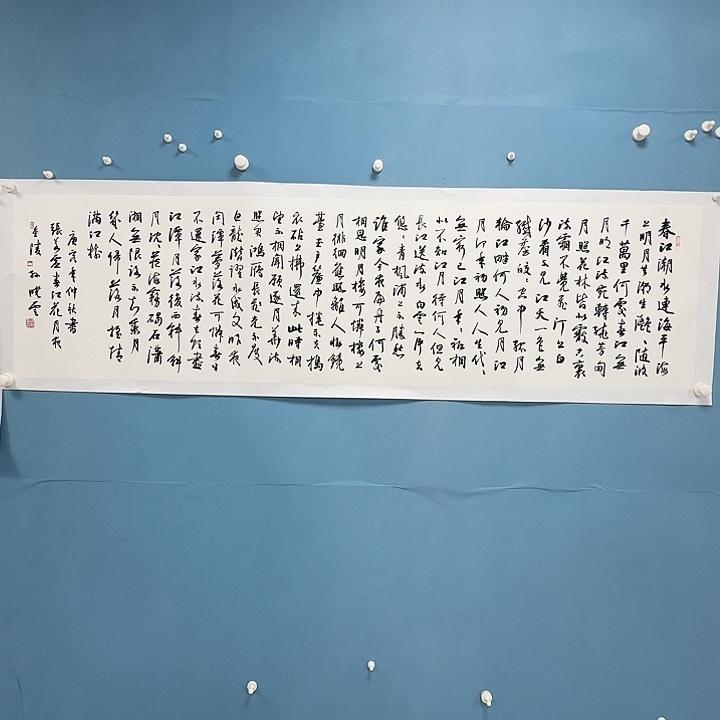 春江潮水連海平海
上明月共潮生灩〻隨波
千萬里何處春江無
月明江流宛轉繞芳甸
月照花林皆似霰空裏
流霜不覺飛汀上白
沙看不見江天一色無
纖塵皎〻空中孤月
輪江畔何人初見月江
月何年初照人人生代〻
無窮已江月年〻祇相
似不知江月待何人但見
長江送流水白雲一片去
悠〻青楓浦上不勝愁
誰家今夜扁舟子何處
相思明月樓可憐樓上
月徘徊應照離人妝鏡
臺玉戶簾中捲不去搗
衣砧上拂還來此時相
望不相聞願逐月華流
照君鴻雁長飛光不度
魚龍潛躍水成文昨夜
閒潭夢落花可憐春半
不還家江水流春去欲盡
江潭月落復西斜斜
月沉〻藏海霧碣石瀟
湘無限路不知乘月
幾人歸落月搖情
滿江樹
庚寅年仲秋書
張若虛春江花月夜
金陵孫曉雲